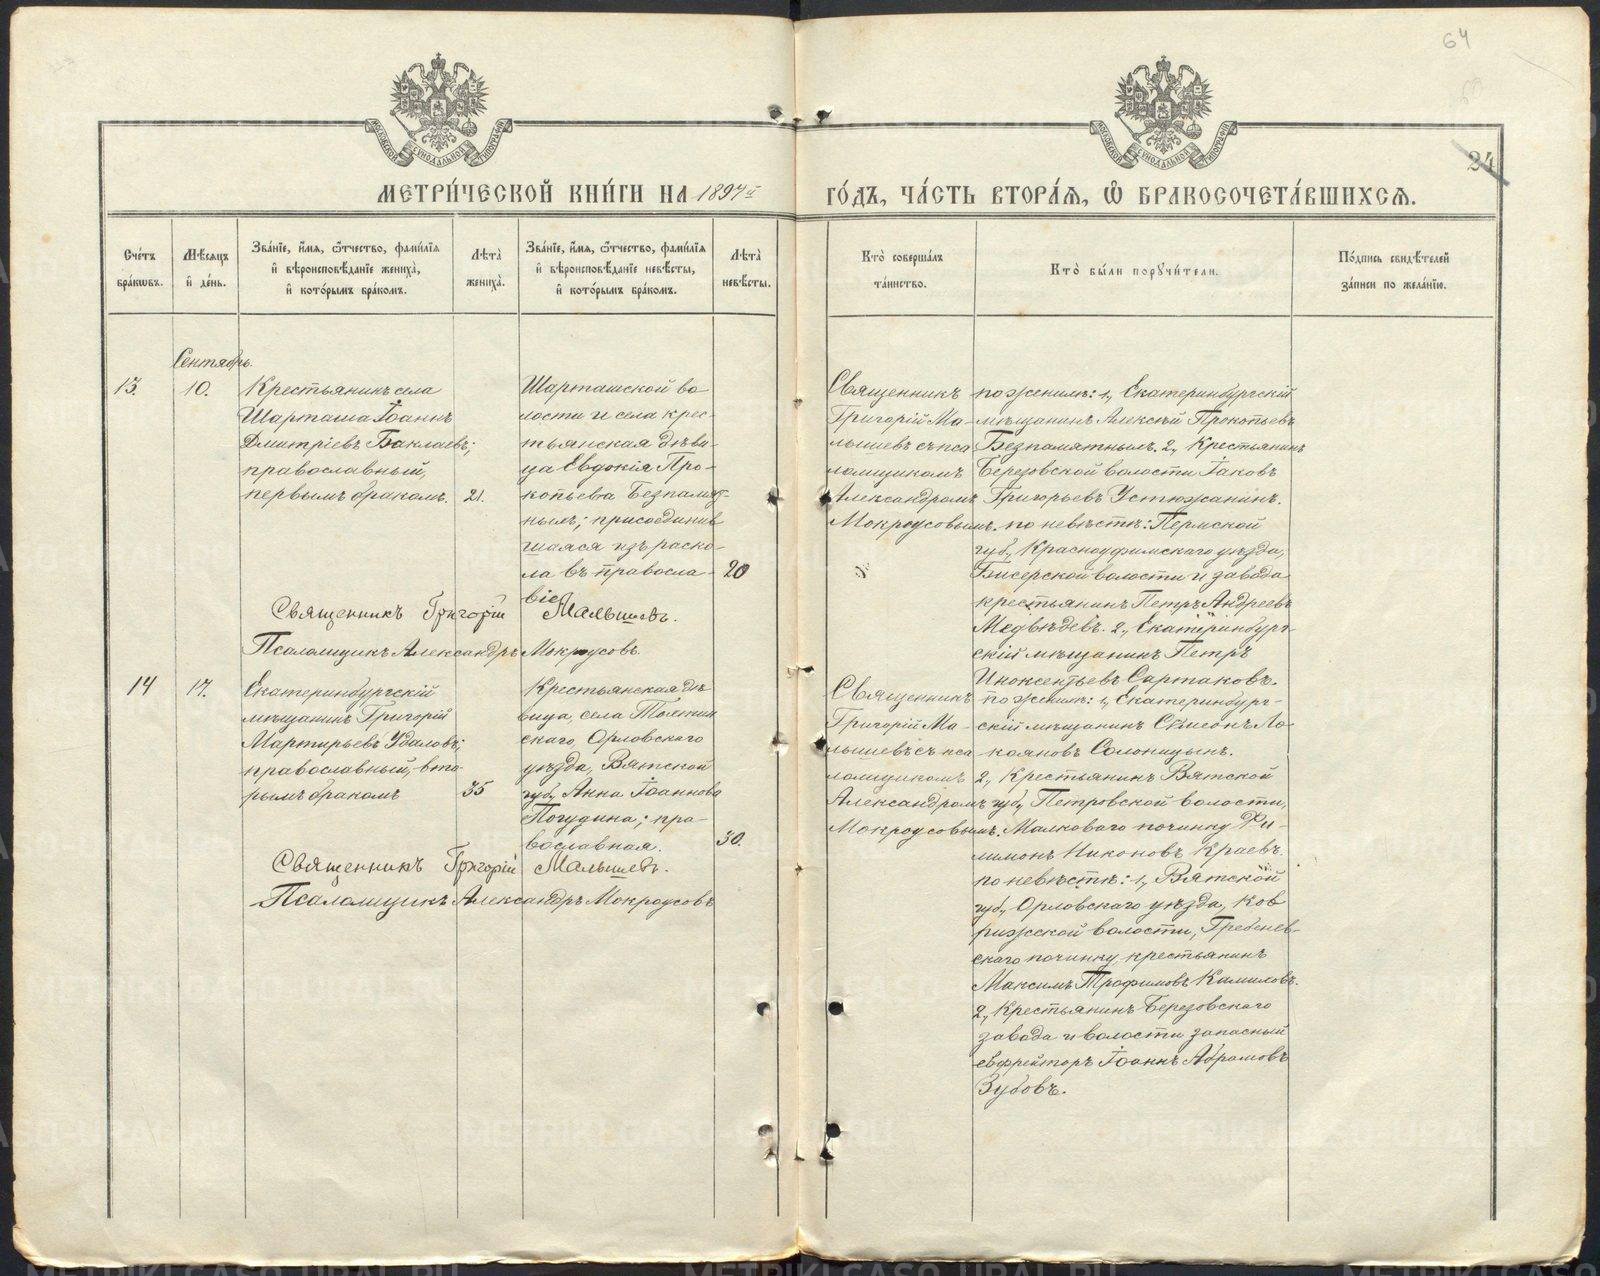 64
24
МОСКОВСКОЙ СѴНОДАЛЬНОЙ ТИПОГРАФІИ
МОСКОВСКОЙ СѴНОДАЛЬНОЙ ТИПОГРАФІИ
МЕТРИ́ЧЕСКОЙ КНИ́ГИ НА 1897й
ГО́ДЪ, ЧА́СТЬ ВТОРА́Ѧ, Ѽ БРАКОСОЧЕТА́ВШИХСѦ.
Сче́тъ бра́кѡвъ.
Мѣ́сѧцъ и҆ де́нь.
Зва́нїе, и҆́мѧ, ѻ҆́тчество, фами́лїѧ и҆ вѣроисповѣ́данїе жениха̀, и҆ кото́рымъ бра́комъ.
Лѣ́та жениха̀.
Зва́нїе, и҆́мѧ, ѻ҆́тчество, фами́лїѧ и҆ вѣроисповѣ́данїе невѣ́сты, и҆ кото́рымъ бра́комъ.
Лѣ́та невѣ́сты.
Кто̀ соверша́лъ та́инство.
Кто̀ бы́ли порꙋчи́тели.
По́дпись свидѣ́телей за́писи по жела́нїю.
Сентябрь.
13.
10.
Крестьянинъ села
Шарташа Іоаннъ
Дмитріевъ Баклаевъ;
православный,
первымъ бракомъ.
21.
Шарташской во
лости и села крес-
тьянская дѣви-
ца Евдокія Про-
копьева Безпамят-
ныхъ; присоединив
шаяся изъ раско-
ла въ правосла-
віе
20
Священникъ
Григорій Ма-
лышевъ съ пса
ломщикомъ
Александромъ
Мокроусовымъ.
по женихѣ: 1, Екатеринбургскій
мѣщанинъ Алексѣй Прокопьевъ
Безпамятныхъ. 2, Крестьянинъ
Березовской волости Іаковъ
Григорьевъ Устюжанинъ.
по невѣстѣ: Пермской
губ., Красноуфимскаго уѣзда,
Бисерской волости и завода
крестьянинъ Петръ Андреевъ
Медвѣдевъ. 2, Екатеринбург-
скій мѣщанинъ Петръ
Инокентьевъ Сартаковъ.
Священникъ Григорій Малышевъ.
Псаломщикъ Александръ Мокроусовъ.
14
17.
Екатеринбургскій
мѣщанинъ Григорій
Мартирьевъ Удаловъ;
православный, вто
рымъ бракомъ
35
Крестьянская дѣ
вица, села
скаго Орловскаго
уѣзда, Вятской
губ., Анна Іоаннова
Погудина; пра-
вославная.
30.
Священникъ
Григорій Ма-
лышевъ съ пса
ломщикомъ
Александромъ
Мокроусовымъ.
по женихѣ: 1, Екатеринбург-
скій мѣщанинъ Сѵмеонъ Ло-
кояновъ Солоницынъ.
2, Крестьянинъ Вятской
губ., Петровской волости,
Малковаго починку Фи-
лимонъ Никоновъ Краевъ.
по невѣстѣ: 1, Вятской
губ., Орловскаго уѣзда, Ков
рижской волости, Гребенев-
скаго починку, крестьянинъ
Максимъ Трофимовъ Камиловъ.
2, Крестьянинъ Березовскаго
завода и волости запасный
ефрейторъ Іоаннъ Абрамовъ
Зубовъ.
Священникъ Григорій Малышевъ.
Псаломщикъ Александръ Мокроусовъ